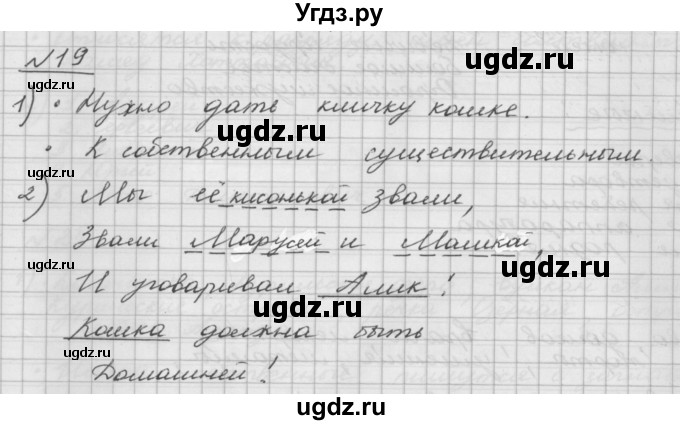 Угдз.ру
№19
1) • Нужно дать кличку кошке.
• К собственным существительным.
2) Мы её кисонькой звали,
Звали Марусей и Машкой,
И уговаривал Алик!
Кошка должна быть
Домашней!
ugdz.ru
ugdz.ru
ugdz.ru
ugdz.ru
ugdz.ru
ugdz.ru
ugdz.ru
ugdz.ru
ugdz.ru
ugdz.ru
ugdz.ru